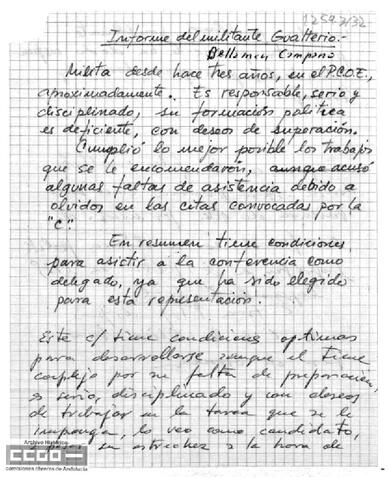 12597/32
Informe del militante Gualterio.-
Bellamen Campano
Milita desde hace tres años, en el P.C.O.E.,
aproximadamente. Es responsable, serio y
disciplinado, su formación política
es deficiente, con deseos de superación.
Cumplió lo mejor posible los trabajos
que se le encomendaron, aunque acusó
algunas faltas de asistencia debido a
olvidos en las citas convocadas por la
"C".
En resumen tiene condiciones
para asistir a la conferencia como
delegado, ya que ha sido elegido
para esta representación.
Este c/ tiene condiciones optimas
para desarrollarse aunque el tiene
complejo por su falta de preparación,
es serio, disciplinado y con deseos
de trabajar en la tarea que se le
imponga, lo veo como candidato,
a la hora de
Archivo Histórico
CCOO
comisiones obreras de Andalucía